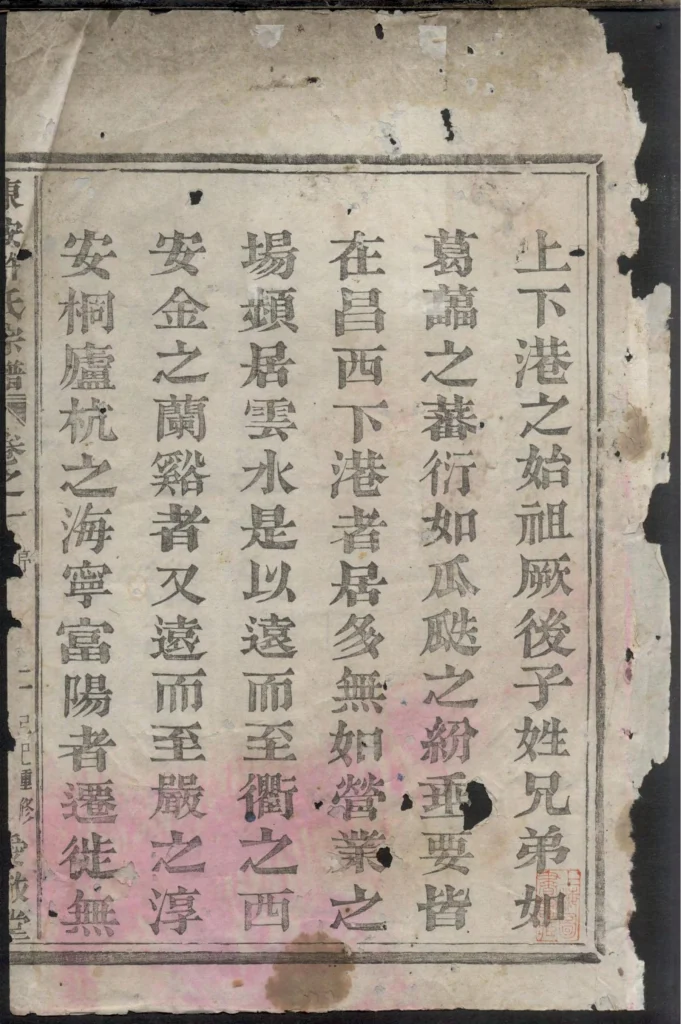 上下港之始祖厥後子姓兄弟如
葛藟之蕃衍如瓜瓞之紛垂要皆
在昌西下港者居多無如營業之
場頻居雲水是以遠而至衢之西
安金之蘭谿者又遠而至嚴之淳
安桐廬杭之海寧富陽者遷徙無
東安許氏宗譜 卷之一 二 重修 愛敬堂